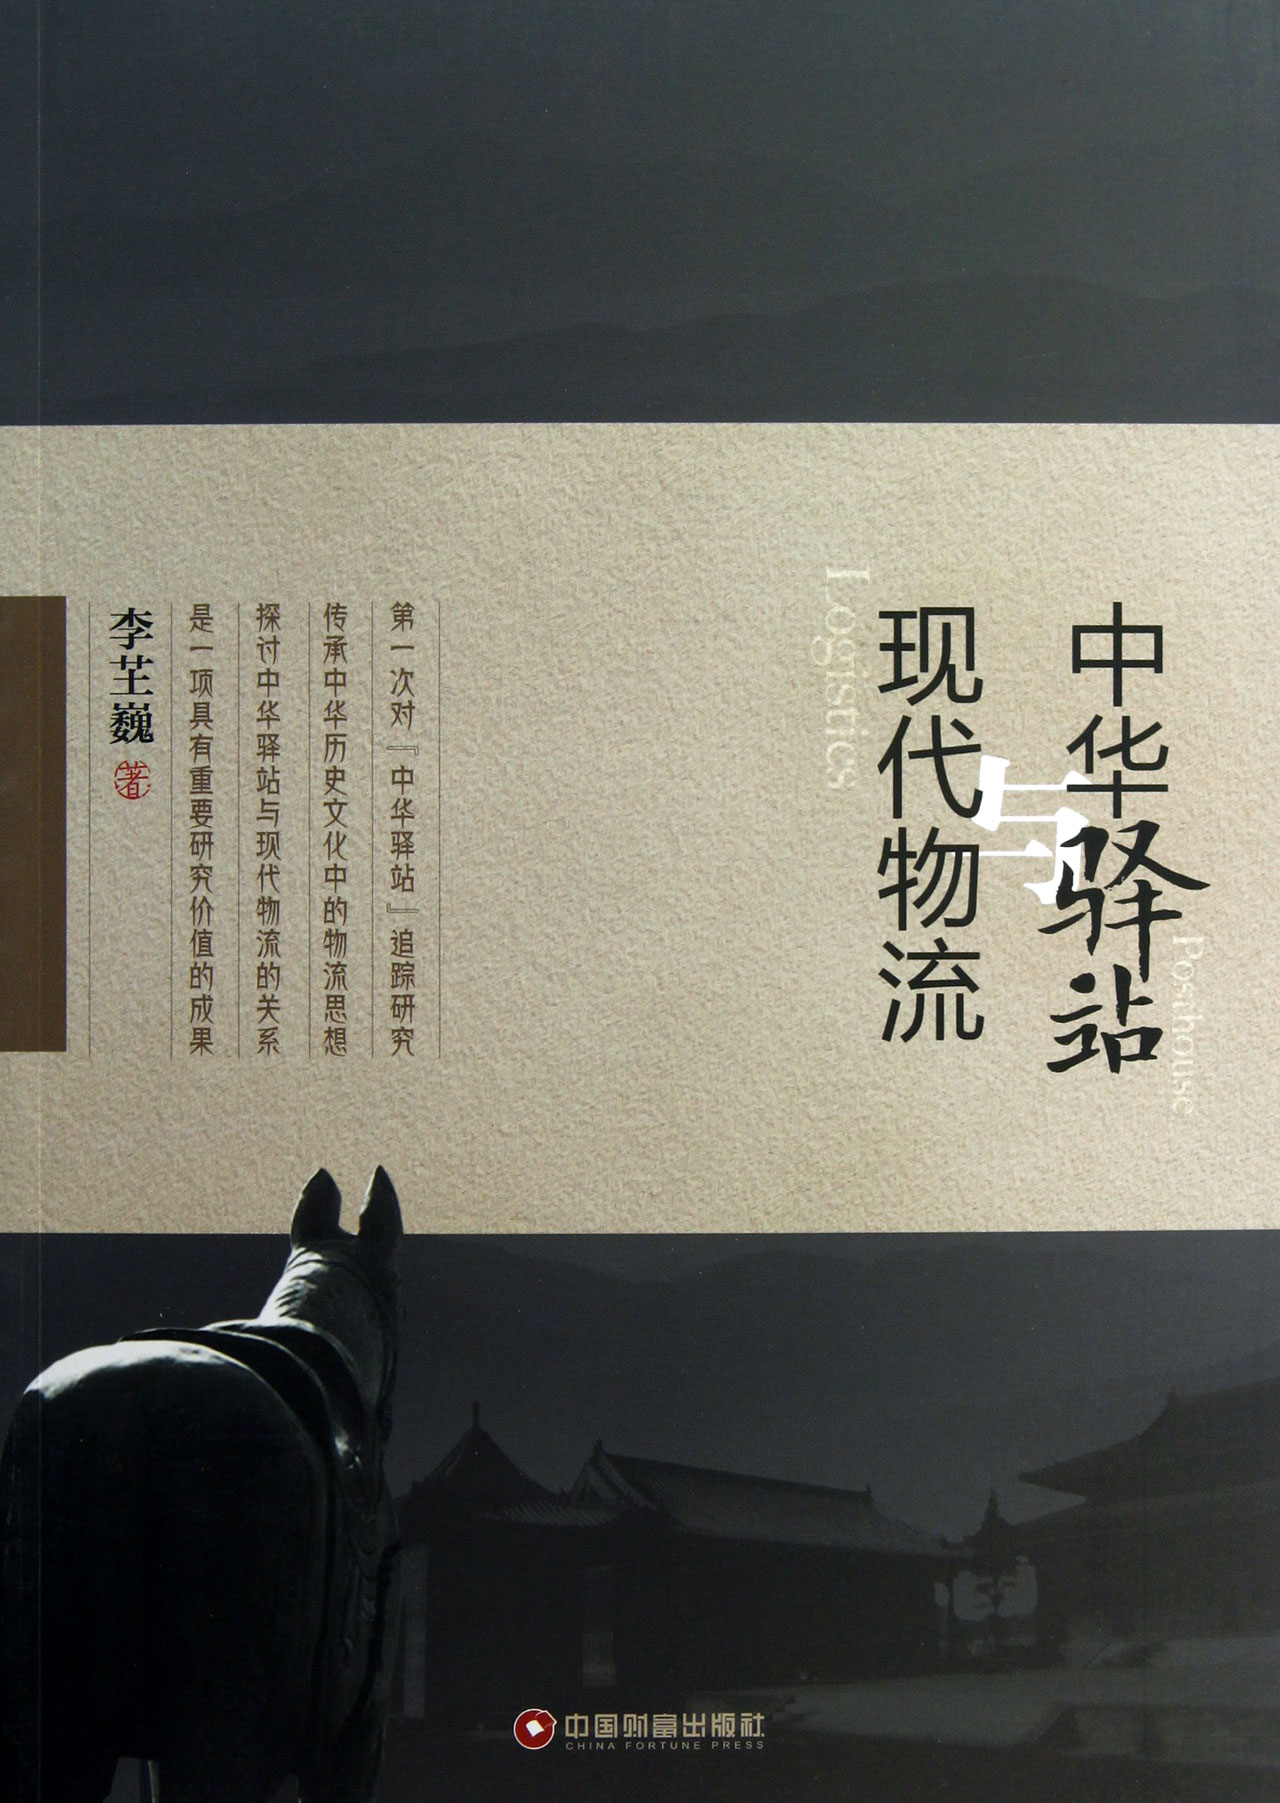 中华驿站
Posthouse
与
现代物流
Logistics
第一次对『中华驿站』追踪研究
传承中华历史文化中的物流思想
探讨中华驿站与现代物流的关系
是一项具有重要研究价值的成果
李芏巍 著
中国财富出版社
CHINA FORTUNE PRESS